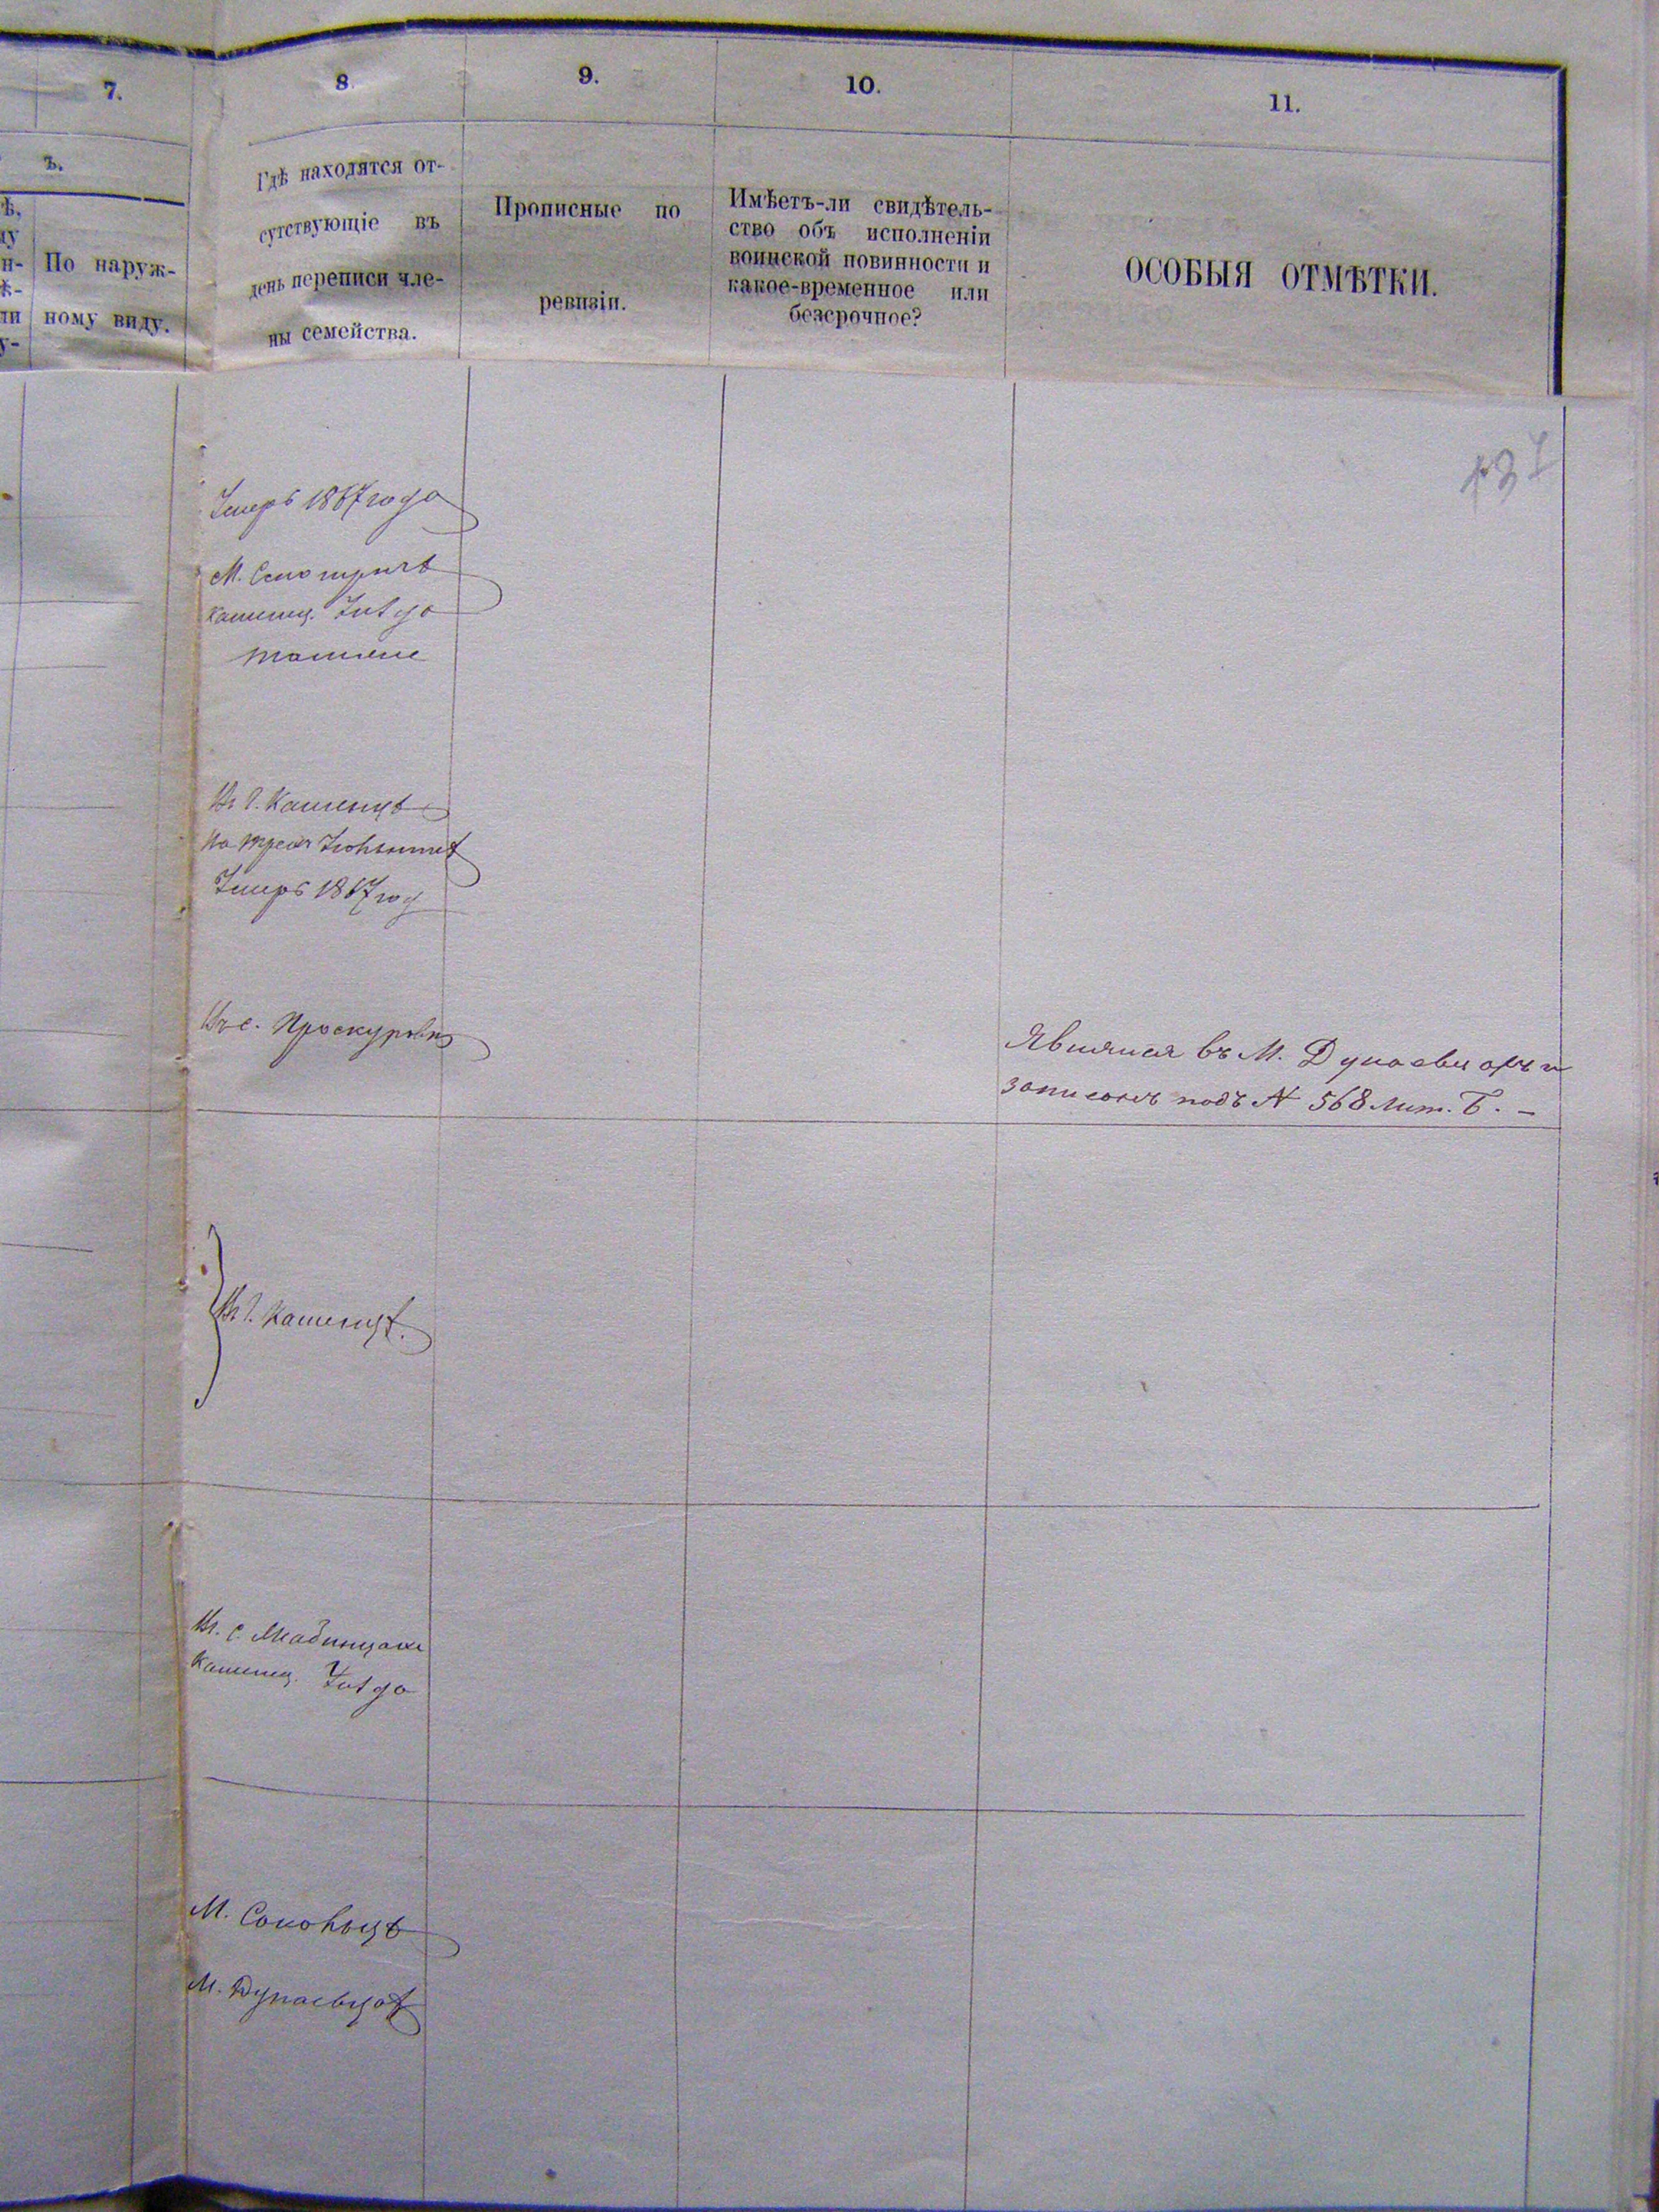 7.
8.
9.
10.
11.
ъ.
По наруж-
ному виду.
Гдѣ находятся от-
сутствующіе въ
день переписи чле-
ны семейства.
Прописные по
ревизіи.
Имѣетъ-ли свидѣтель-
ство объ исполненіи
воинской повинности и
какое-временное или
безсрочное?
ОСОБЫЯ ОТМѢТКИ.
Умеръ 1867 года
М. Смотричъ
Каменец. Уѣзда
тамже
Въ г. Каменцѣ
Умеръ 1867 год
Въ с. Проскуровъ
Явился въ М. Дунаевцахъ и
записанъ подъ N 568 лит. Б. –
Въ г. Каменцѣ.
Въ с.
Каменец. Уѣзда
М. Соколецъ
М. Дунаевцахъ